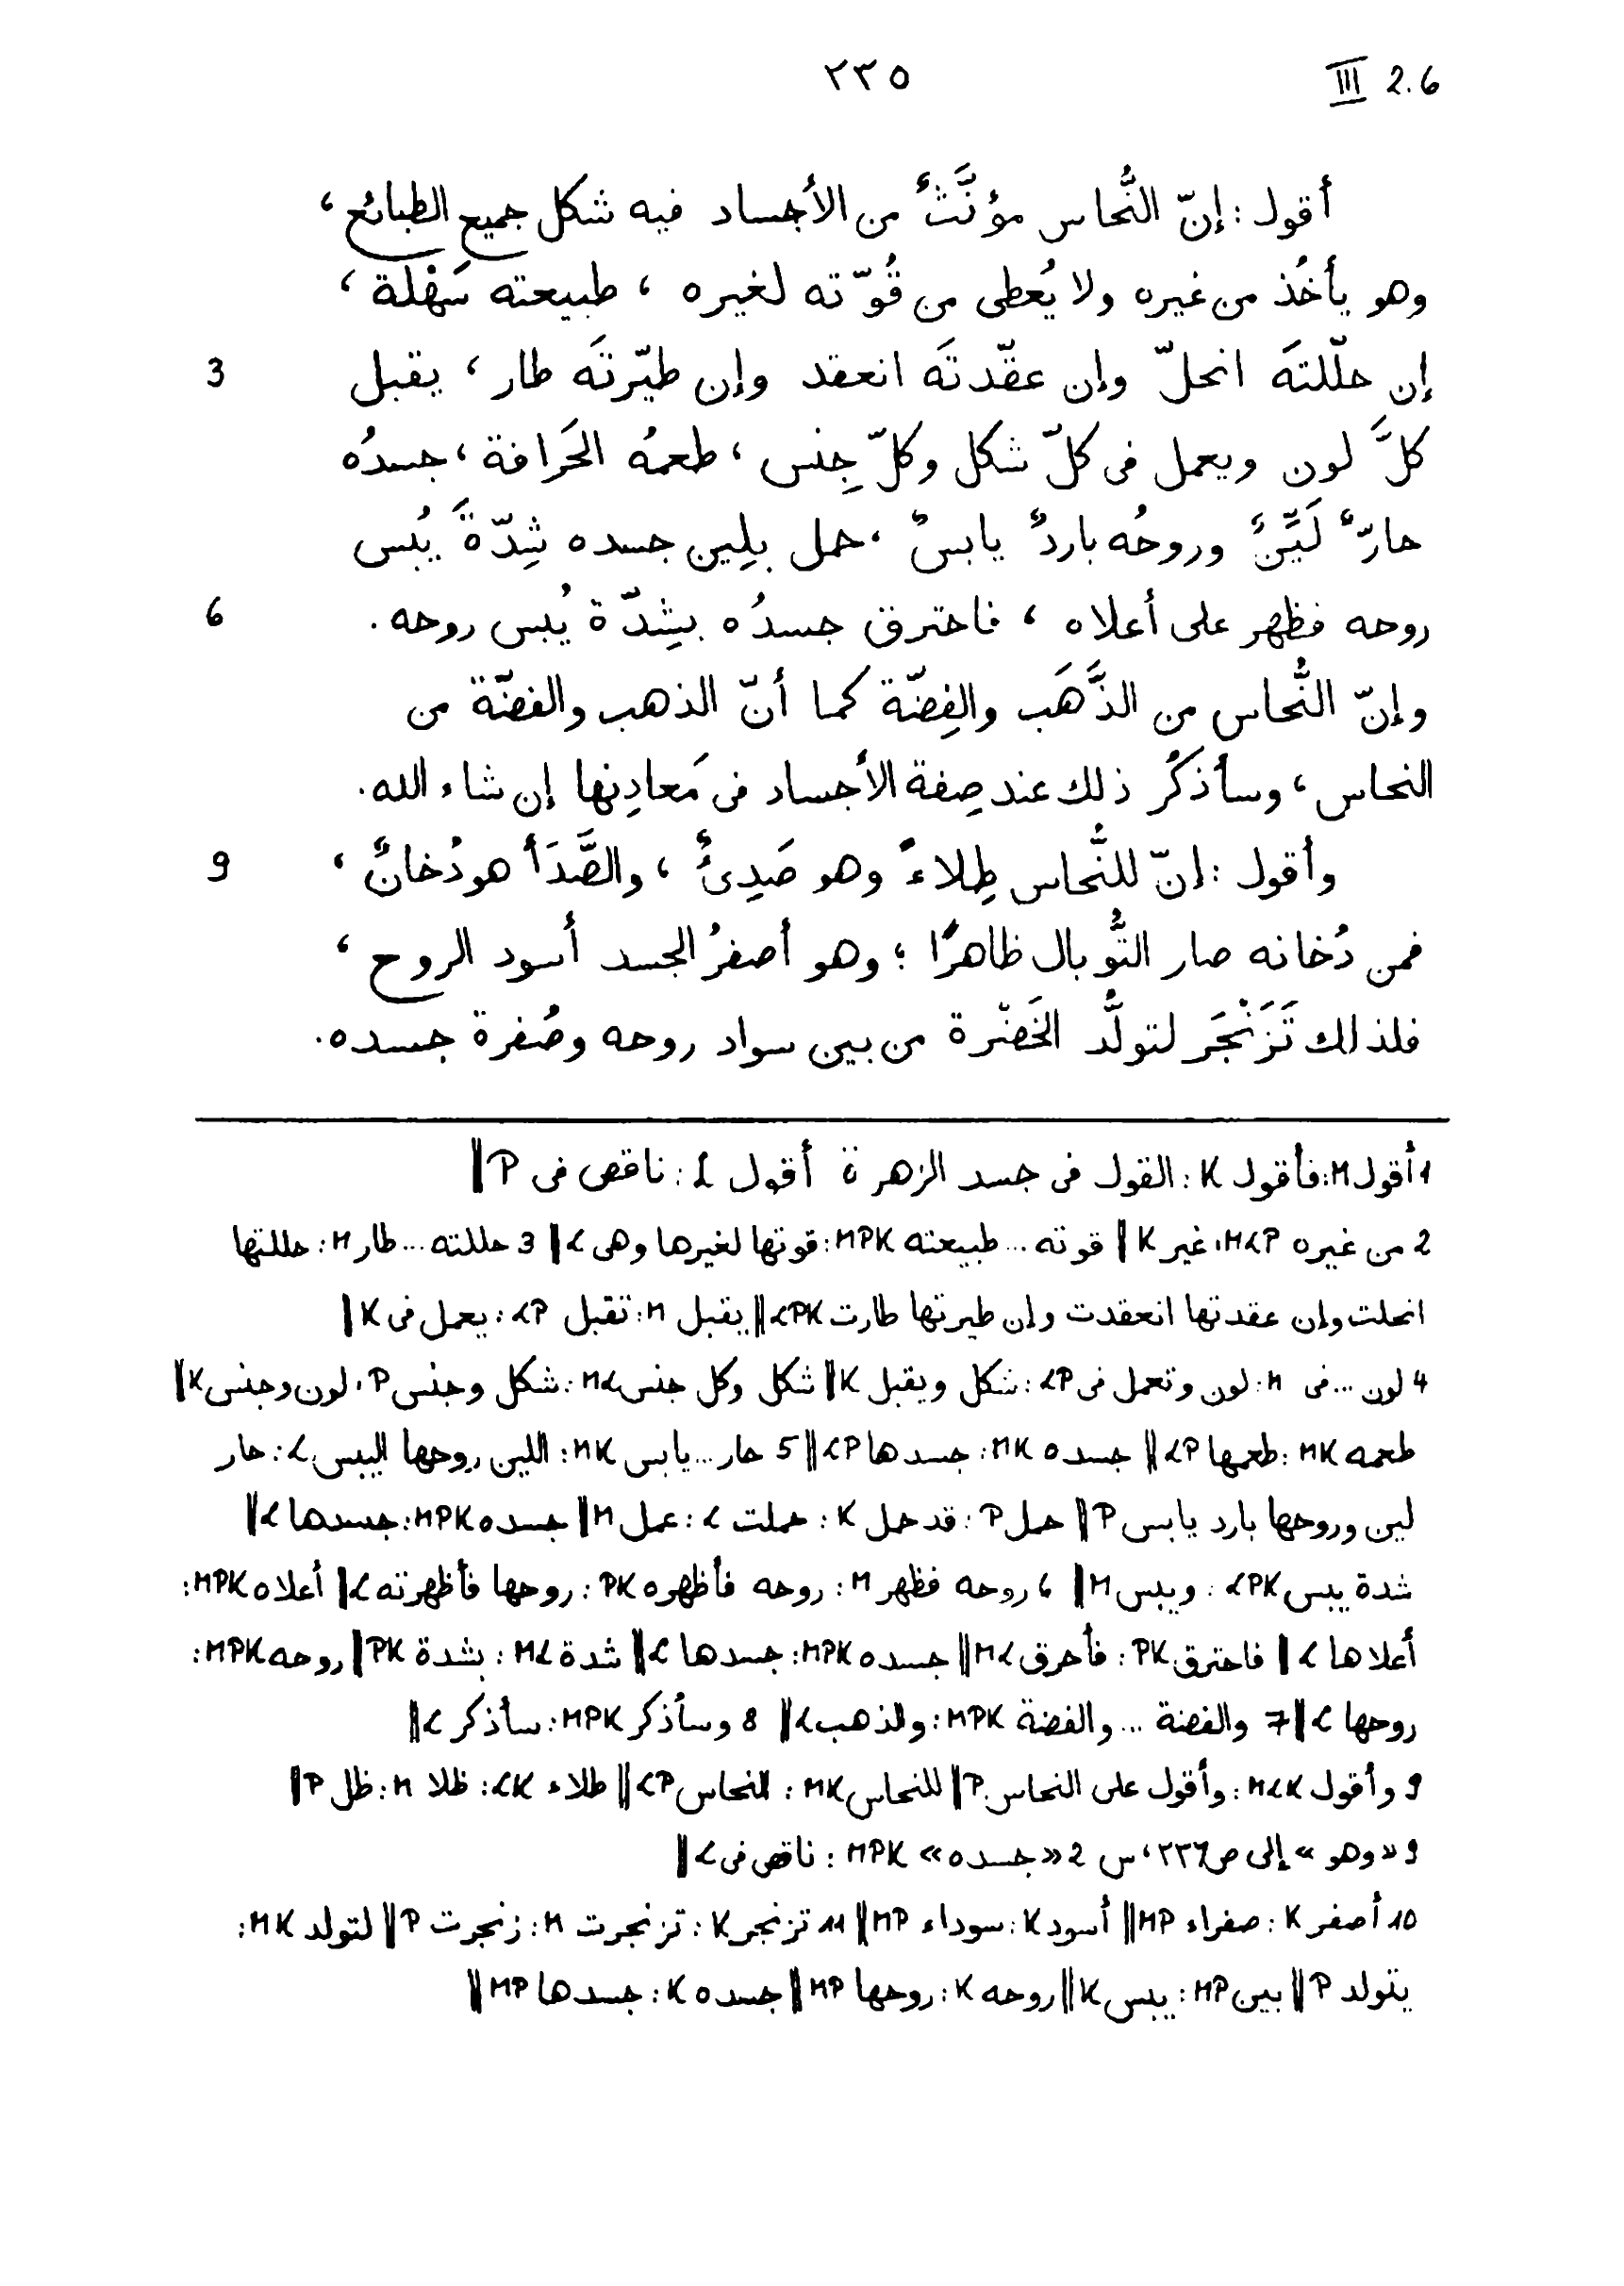 ٢٣٥ III 2.6
أقول : إنّ النُّحاس مؤنَّثٌ من الأجساد فيه شكل جميع الطبائع ،
وهو يأخُذ من غيره ولا يُعطى من قُوّته لغيره ، طبيعته سَهْلة ،
إن حلّلتَه انحلّ وإن عقّدتَه انعقد وإن طيّرتَه طار ، يقبل 3
كلَّ لون ويعمل فى كلّ شكل وكلّ جِنس ، طعمهُ الحَرافة ، جسدُه
حارٌّ لَيِّنٌ وروحُه باردٌ يابسٌ ، حمل بلِين جسده شِدّةَ يُبس
روحه فظهر على أعلاه ، فاحترق جسدُه بشِدّة يُبس روحه . 6
وإنّ النُّحاس من الذَّهَب والفِضّة كما أنّ الذهب والفضّة من
النحاس ، وسأذكُر ذلك عند صِفة الأجساد فى مَعادِنها إن شاء الله .
وأقول : إنّ للنُّحاس طِلاءً وهو صَدِئٌ ، والصَّدَأ هو دُخانٌ ، 9
فمن دُخانه صار التُّوبال ظاهرًا ؛ وهو أصفرُ الجسد أسود الروح ،
فلذلك تَزَنْجَر لتولُّد الخَضْرة من بين سواد روحه وصُفرة جسده .
1 أقول M : فأقول K : القول فى جسد الزهرة أقول L : ناقص فى P ||
2 من غيره MLP : غير K || قوته ... طبيعته MPK : قوتها لغيرها وهى L || 3 حللته ... طار M : حللتها
انحلت وإن عقدتها انعقدت وإن طيرتها طارت LPK || يقبل M : تقبل LP : يعمل فى K ||
4 لون ... فى M : لون وتعمل فى LP : شكل ويقبل K || شكل وكل جنس ML : شكل وجنس P : لون وجنس K ||
طعمه MK : طعمها LP || جسده MK : جسدها LP || 5 حار ... يابس MK : اللين روحها اليبس L : حار
لين وروحها بارد يابس P || حمل P : قد حمل K : حملت L : عمل M || جسده MPK : جسدها L ||
شدة يبس LPK : ويبس M || 6 روحه فظهر M : روحه فأظهره PK : روحها فأظهرته L || أعلاه MPK :
أعلاها L || فاحترق PK : فأحرق ML || جسده MPK : جسدها L || شدة ML : بشدة PK || روحه MPK :
روحها L || 7 والفضة ... والفضة MPK : والذهب L || 8 وسأذكر MPK : سأذكر L ||
9 وأقول MLK : وأقول على النحاس P || للنحاس MK : النحاس LP || طلاء LK : ظلا M : ظل P ||
9 «وهو» إلى ص ٢٣٦ ، س 2 «جسده» MPK : ناقص فى L ||
10 أصفر K : صفراء MP || أسود K : سوداء MP || 11 تزنجر K : تزنجرت M : زنجرت P || لتولد MK :
يتولد P || بين MP : يبس K || روحه K : روحها MP || جسده K : جسدها MP ||